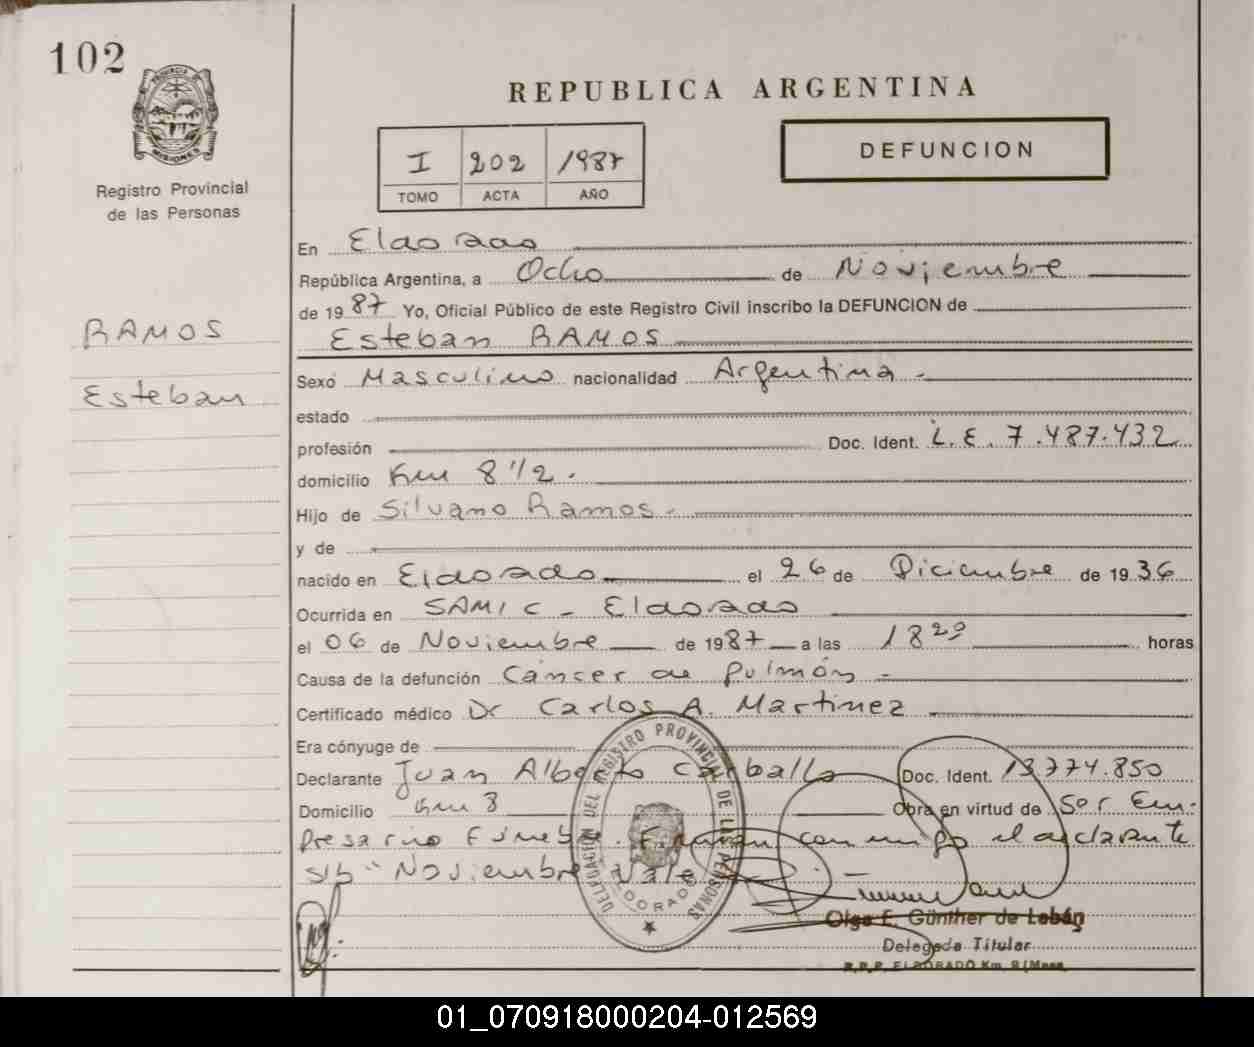 102
PROVINCIA DE
MISIONES
Registro Provincial
de las Personas
RAMOS
Esteban
REPUBLICA ARGENTINA
I 202 1987
TOMO ACTA AÑO
DEFUNCION
En Eldorado
República Argentina, a Ocho de Noviembre
de 1987 Yo, Oficial Público de este Registro Civil inscribo la DEFUNCION de
Esteban RAMOS
Sexo Masculino nacionalidad Argentina.
estado
profesión Doc. Ident. L.E. 7.487.432
domicilio Km 8 1/2.
Hijo de Silvano Ramos.
y de
nacido en Eldorado el 26 de Diciembre de 1936
Ocurrida en SAMIC - Eldorado
el 06 de Noviembre de 1987 a las 18 20 horas
Causa de la defunción Cáncer de Pulmón
Certificado médico Dr Carlos A. Martinez
Era cónyuge de
Declarante Juan Alberto Carballo Doc. Ident. 13.774.850
Domicilio Km 8 Obra en virtud de Ser Em-
presario Fúnebre. Firman conmigo el declarante
s/b "Noviembre Vale
DELEGACION DEL REGISTRO PROVINCIAL DE LAS PERSONAS
ELDORADO
Olga E. Günther de Lobán
Delegada Titular
R.P.P. ELDORADO Km. 9/Mnes.
01_070918000204-012569